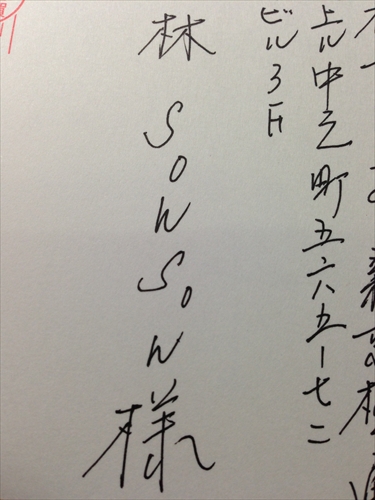 新京極通
上ル中之町五六五ー七二
ビル3F
林 SonSon 様